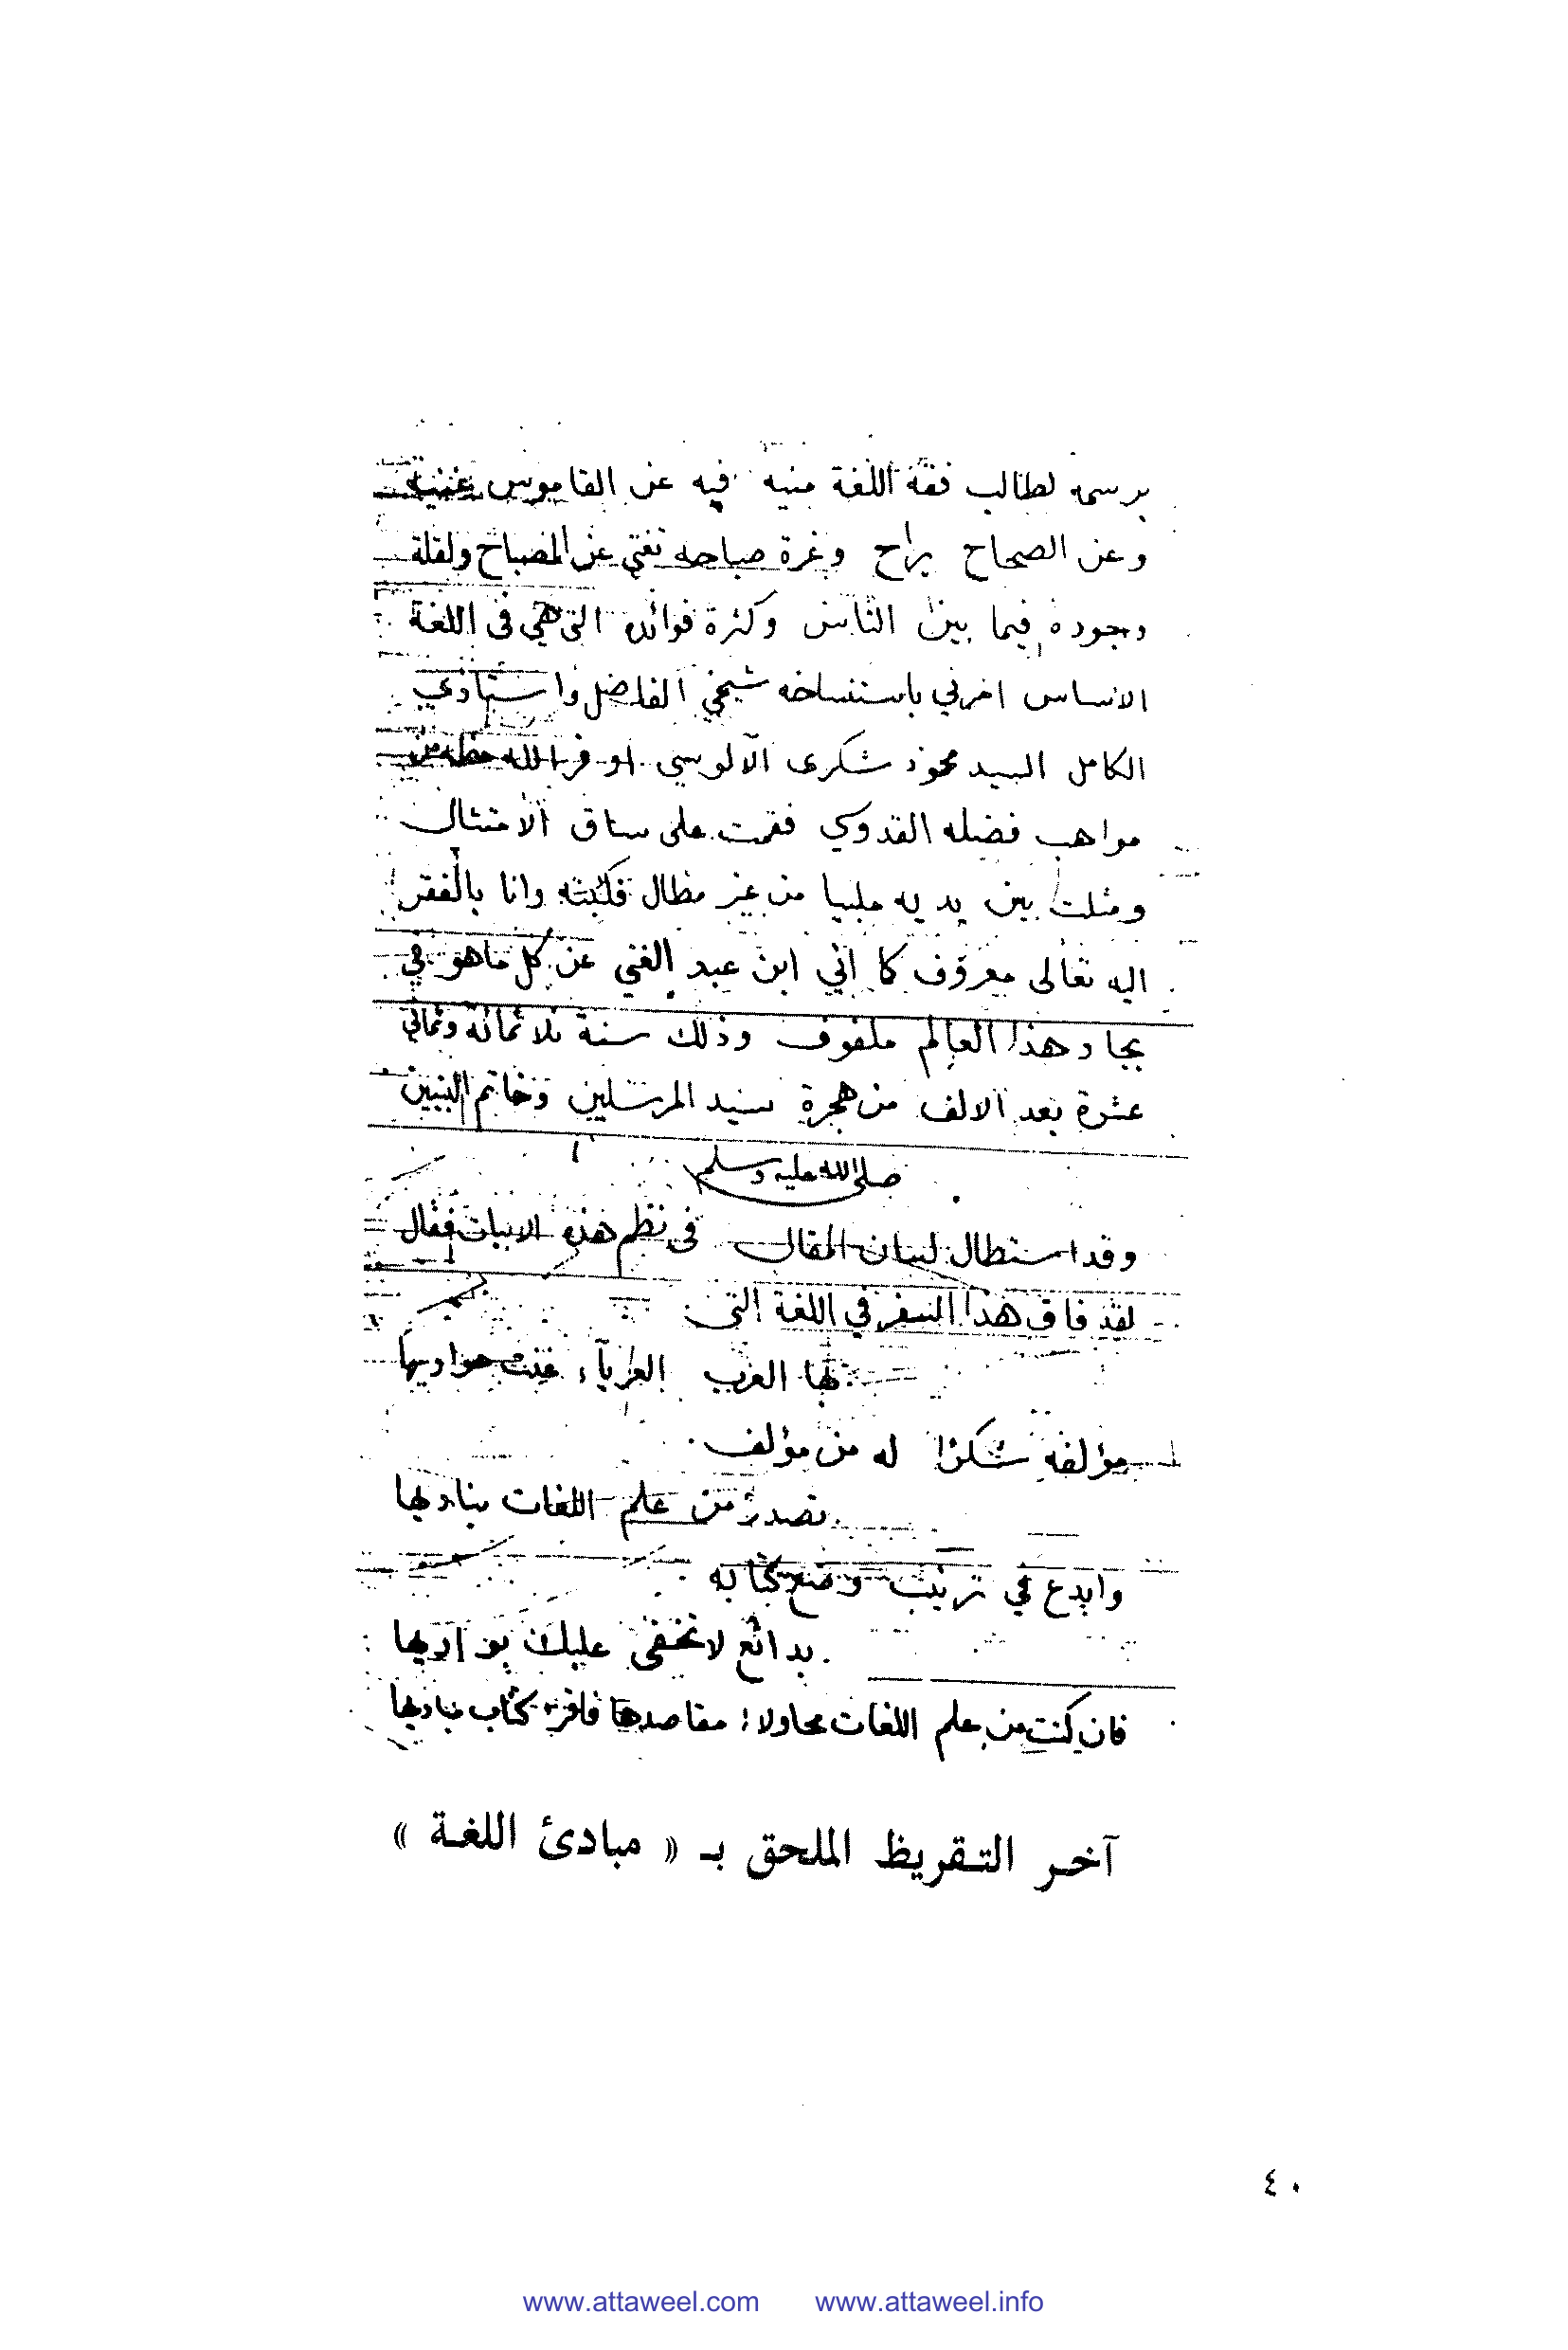 برسمه لطالب فقه اللغة منية فيه عن القاموس غنية
وعن الصحاح براح وغرة صباحه تغني عن المصباح ولقلة
وجوده فيما بين الناس وكثرة فوائده التي هي في اللغة
الاساس امرني باستنساخه شيخي الفاضل واستاذي
الكامل السيد محمود شكري الآلوسي اوفر الله حظه من
مواهب فضله القدوسي فقمت على ساق الامتثال
ومثلت بين يديه ملبيا من غير مطال فكتبته وانا بالفقر
اليه تعالى معروف كما اني ابن عبد الغني عن كل ما هو في
بجاد هذا العالم ملفوف وذلك سنة ثلاثمائة وثماني
عشرة بعد الالف من هجرة سيد المرسلين وخاتم النبيين
صلى الله عليه وسلم
وقد استطال لسان المقال في نظم هذه الابيات فقال
لقد فاق هذا السفر في اللغة التي
لها العرب العربآء غنت حواديها
مؤلفه شكرا له من مؤلف
تصدر من علم اللغات بناديها
وابدع في ترتيب وضع كتابه
بدائع لا تخفى عليك بواديها
فان كنت من علم اللغات محاولا مقاصدها فاقرء كتاب مباديها
آخر التقريظ الملحق بـ « مبادئ اللغة »
٤٠
www.attaweel.com www.attaweel.info